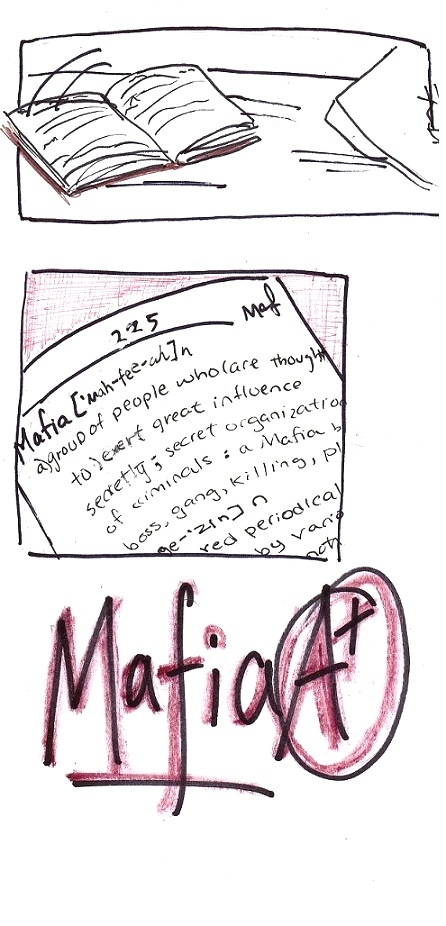 225
Maf
Mafia ['mah-fee-ah] n
a) group of people who are thought
to exert great influence
secretly; secret organization
of criminals: a Mafia b
boss, gang, killing, pl
ge-'zin] n
red periodical
by vario
Mafia A+